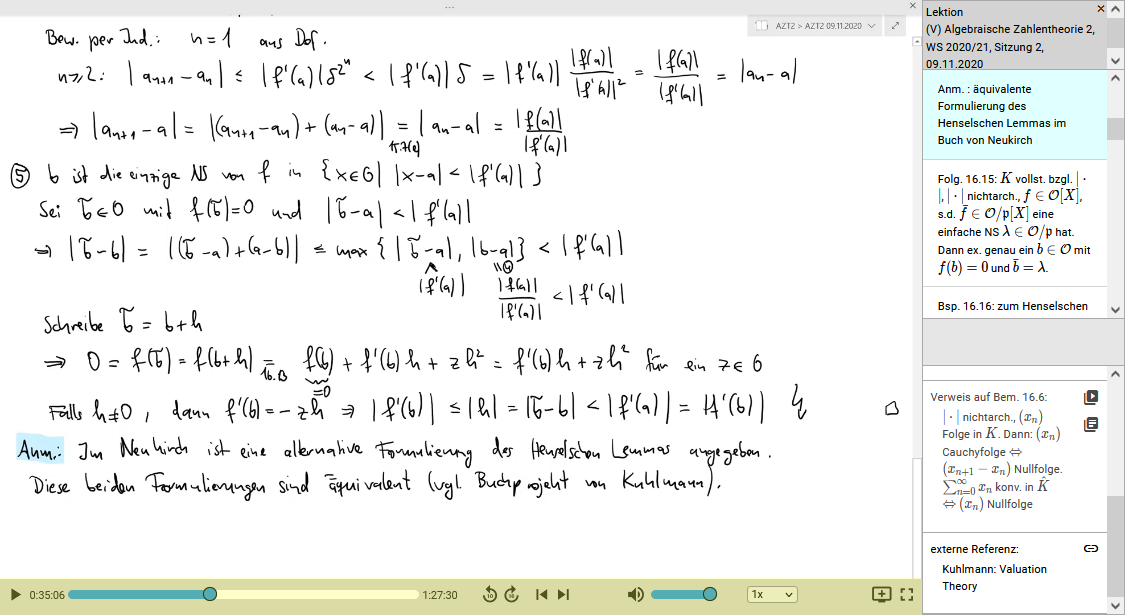 AZT2 > AZT2 09.11.2020
Bew. per Ind.: n=1 aus Def.
n≥2: |aₙ₊₁ - aₙ| ≤ |f'(a)|δ^{2^n} < |f'(a)|δ = |f'(a)| |f(a)|/|f'(a)|² = |f(a)|/|f'(a)| = |aₙ - a|
⇒ |aₙ₊₁ - a| = |(aₙ₊₁ - aₙ) + (aₙ - a)| = |aₙ - a| = |f(a)|/|f'(a)|
⑤ b ist die einzige NS von f in {x∈O | |x-a| < |f'(a)|}
Sei b̃ ∈ O mit f(b̃)=0 und |b̃-a| < |f'(a)|
⇒ |b̃-b| = |(b̃-a)+(a-b)| ≤ max{|b̃-a|, |b-a|} < |f'(a)|
∧ "④
|f'(a)| |f(a)|/|f'(a)| < |f'(a)|
Schreibe b̃ = b+h
⇒ 0 = f(b̃) = f(b+h) = f(b) + f'(b)h + zh² = f'(b)h + zh² für ein z∈O
16.13 =0
Falls h≠0, dann f'(b) = -zh ⇒ |f'(b)| ≤ |h| = |b̃-b| < |f'(a)| = |f'(b)| ↯ □
Anm.: Im Neukirch ist eine alternative Formulierung des Henselschen Lemmas angegeben.
Diese beiden Formulierungen sind äquivalent (vgl. Buchprojekt von Kuhlmann).
0:35:06
1:27:30
10
30
1x
Lektion
(V) Algebraische Zahlentheorie 2,
WS 2020/21, Sitzung 2,
09.11.2020
Anm. : äquivalente
Formulierung des
Henselschen Lemmas im
Buch von Neukirch
Folg. 16.15: K vollst. bzgl. | ·
|, | · | nichtarch., f ∈ O[X],
s.d. f̄ ∈ O/p[X] eine
einfache NS λ ∈ O/p hat.
Dann ex. genau ein b ∈ O mit
f(b) = 0 und b̄ = λ.
Bsp. 16.16: zum Henselschen
Verweis auf Bem. 16.6:
| · | nichtarch., (xₙ)
Folge in K. Dann: (xₙ)
Cauchyfolge ⇔
(xₙ₊₁ − xₙ) Nullfolge.
∑_{n=0}^∞ xₙ konv. in K̂
⇔ (xₙ) Nullfolge
externe Referenz:
Kuhlmann: Valuation
Theory